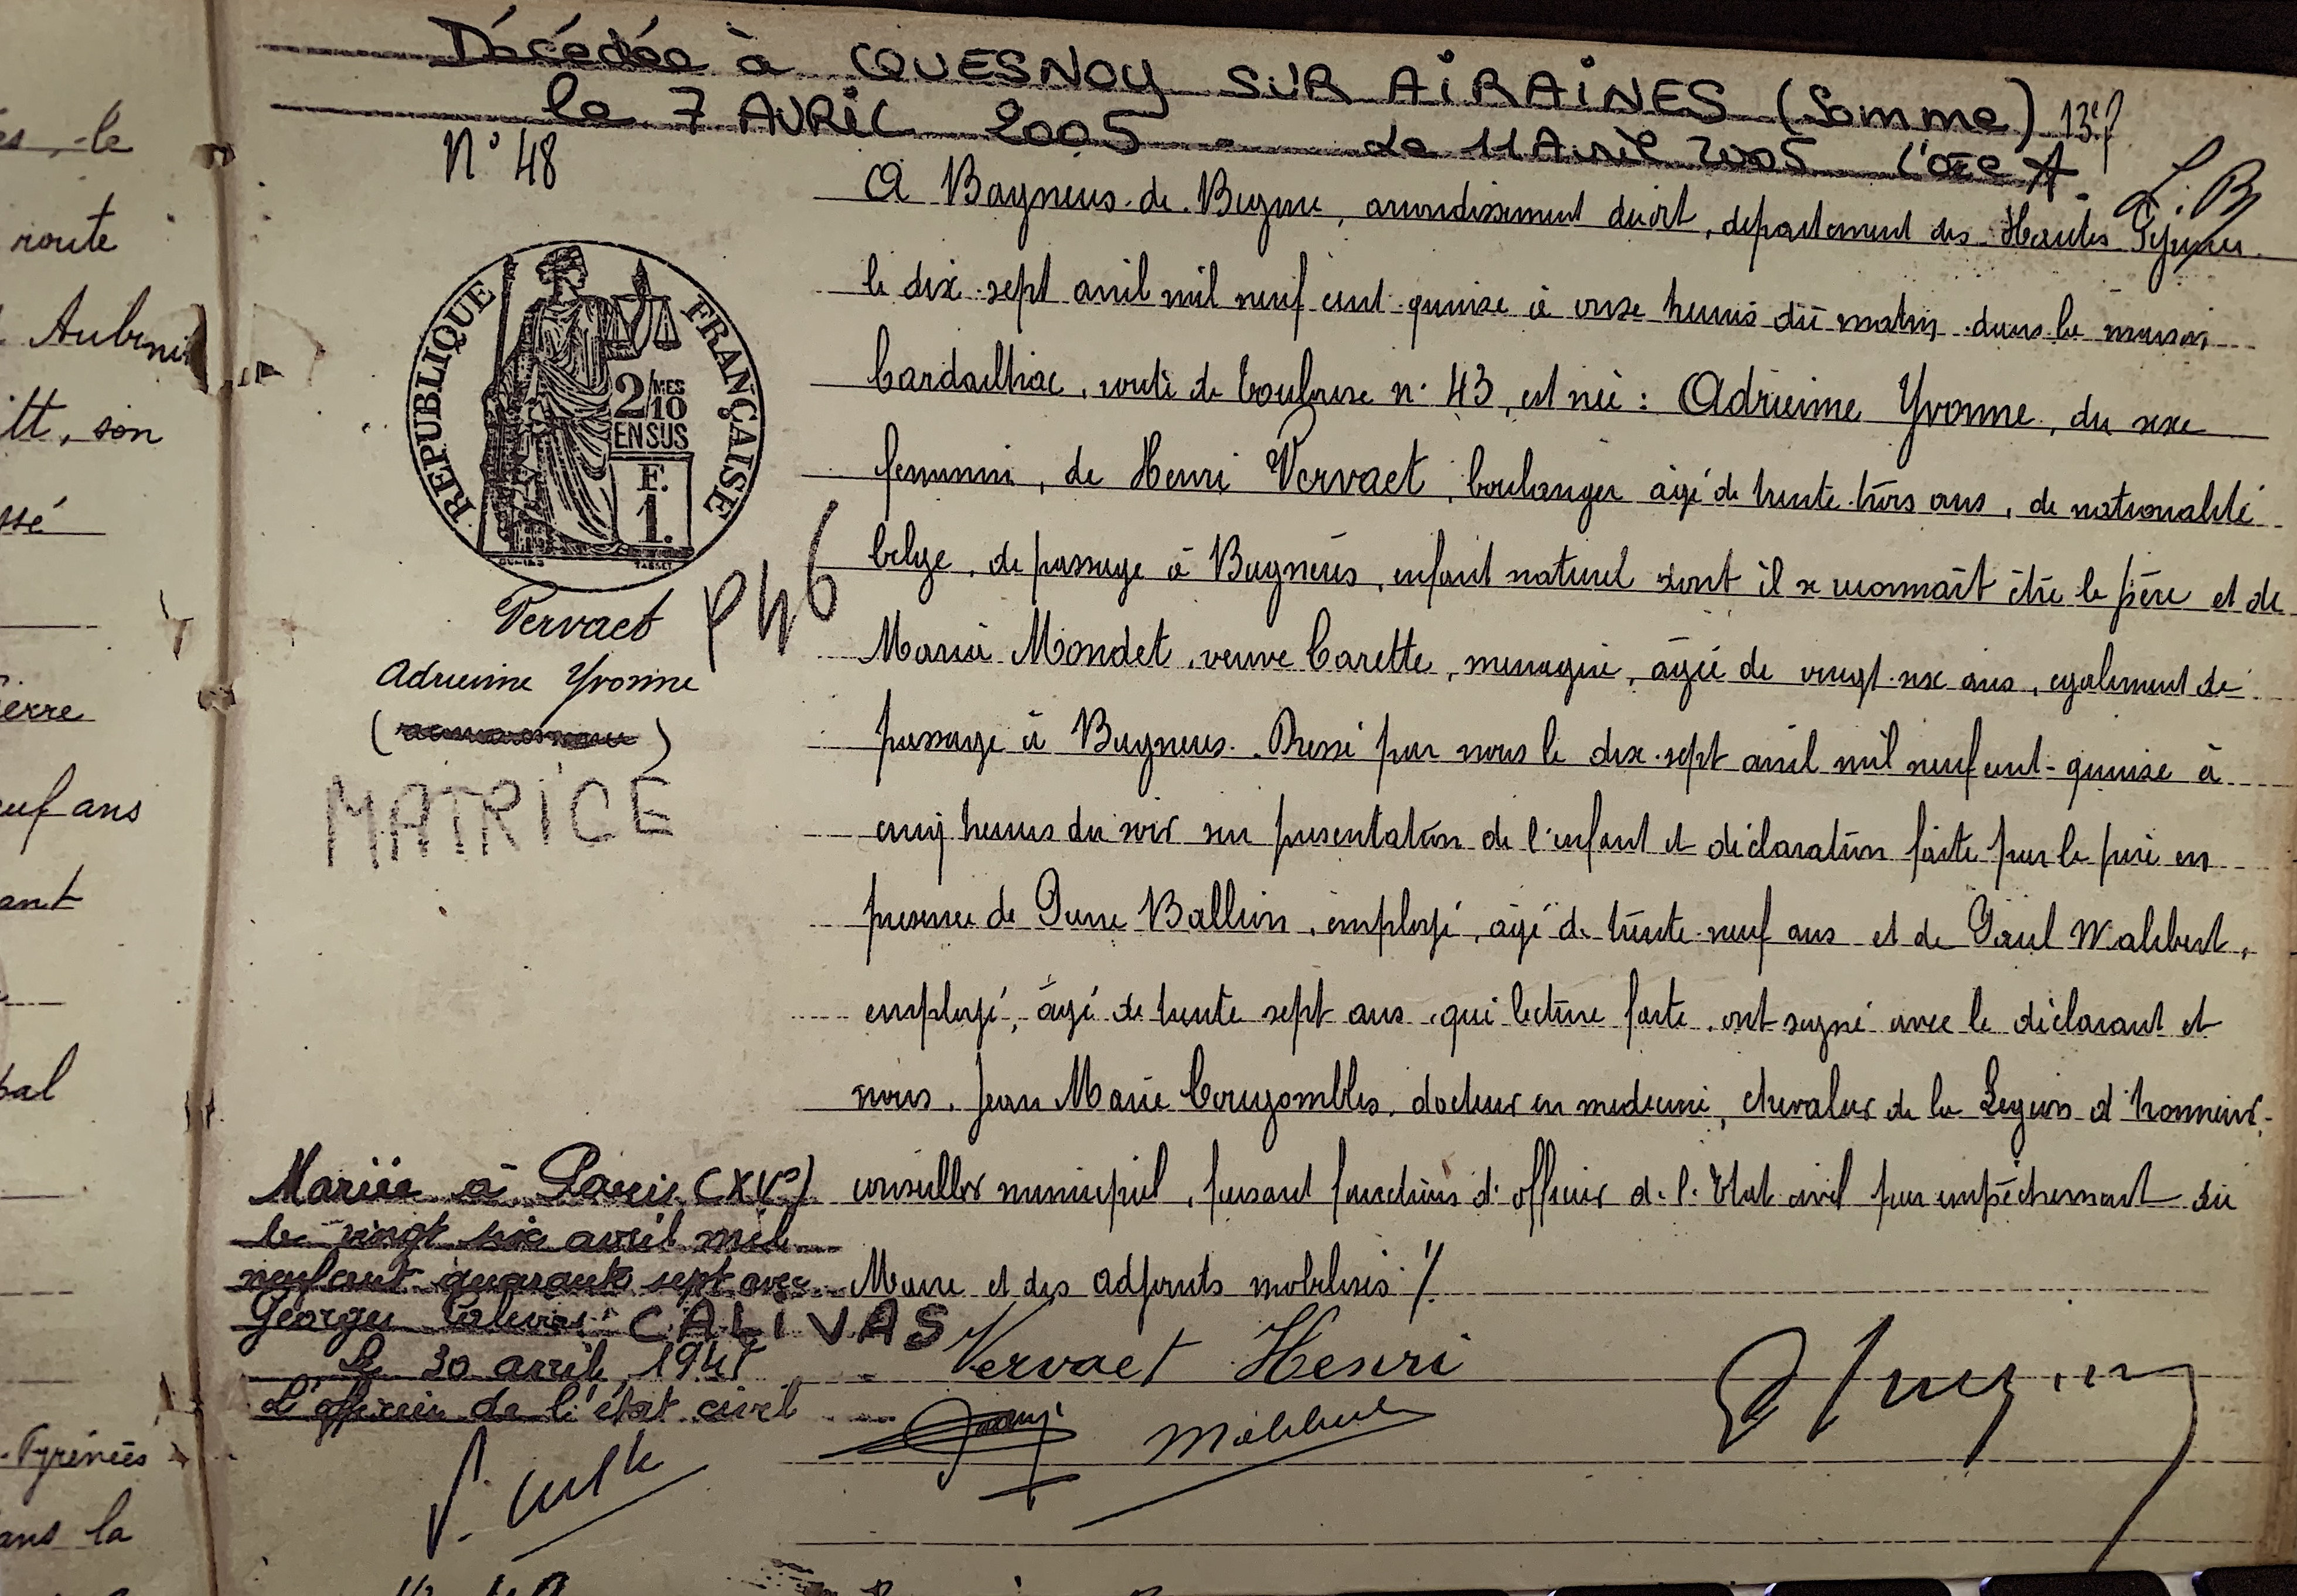 Décédée à QUESNOY SUR AIRAINES (Somme)
le 7 AVRIL 2005 - le 11 Avril 2005 L'OEC
13 f
L. B
N° 48
A Bagnères-de-Bigorre, arrondissement dudit, département des Hautes Pyrénées
le dix-sept avril mil neuf cent quinze à onze heures du matin dans la maison
Cardailhac, route de Toulouse n° 43, est née : Adrienne Yvonne, du sexe
féminin, de Henri Vervaet, boulanger âgé de trente-trois ans, de nationalité
belge, de passage à Bagnères, enfant naturel dont il se reconnaît être le père et de
Maria Mondet, veuve Carette, ménagère, âgée de vingt-six ans, également de
passage à Bagnères. Dressé par nous le dix-sept avril mil neuf cent-quinze à
cinq heures du soir sur présentation de l'enfant et déclaration faite par le père en
présence de Pierre Ballion, employé, âgé de trente-neuf ans et de Paul
employé, âgé de trente sept ans, qui lecture faite, ont signé avec le déclarant et
nous, Jean Marie Cougombles, docteur en médecine, chevalier de la Légion d'honneur,
conseiller municipal, faisant fonctions d'officier de l'Etat civil par empêchement du
Maire et des adjoints mobilisés ./.
REPUBLIQUE FRANÇAISE
2/MES
10
EN SUS
F.
1.
Vervaet
Adrienne Yvonne
MATRICE
Mariée à Paris (XVe)
le vingt six avril mil
neuf cent quarante sept avec
Georges CALIVAS
Le 30 avril 1947
L'officier de l'état civil
Vervaet Henri
le
route
son
ssé
ierre
euf ans
ant
pal
Pyrénées
ans la